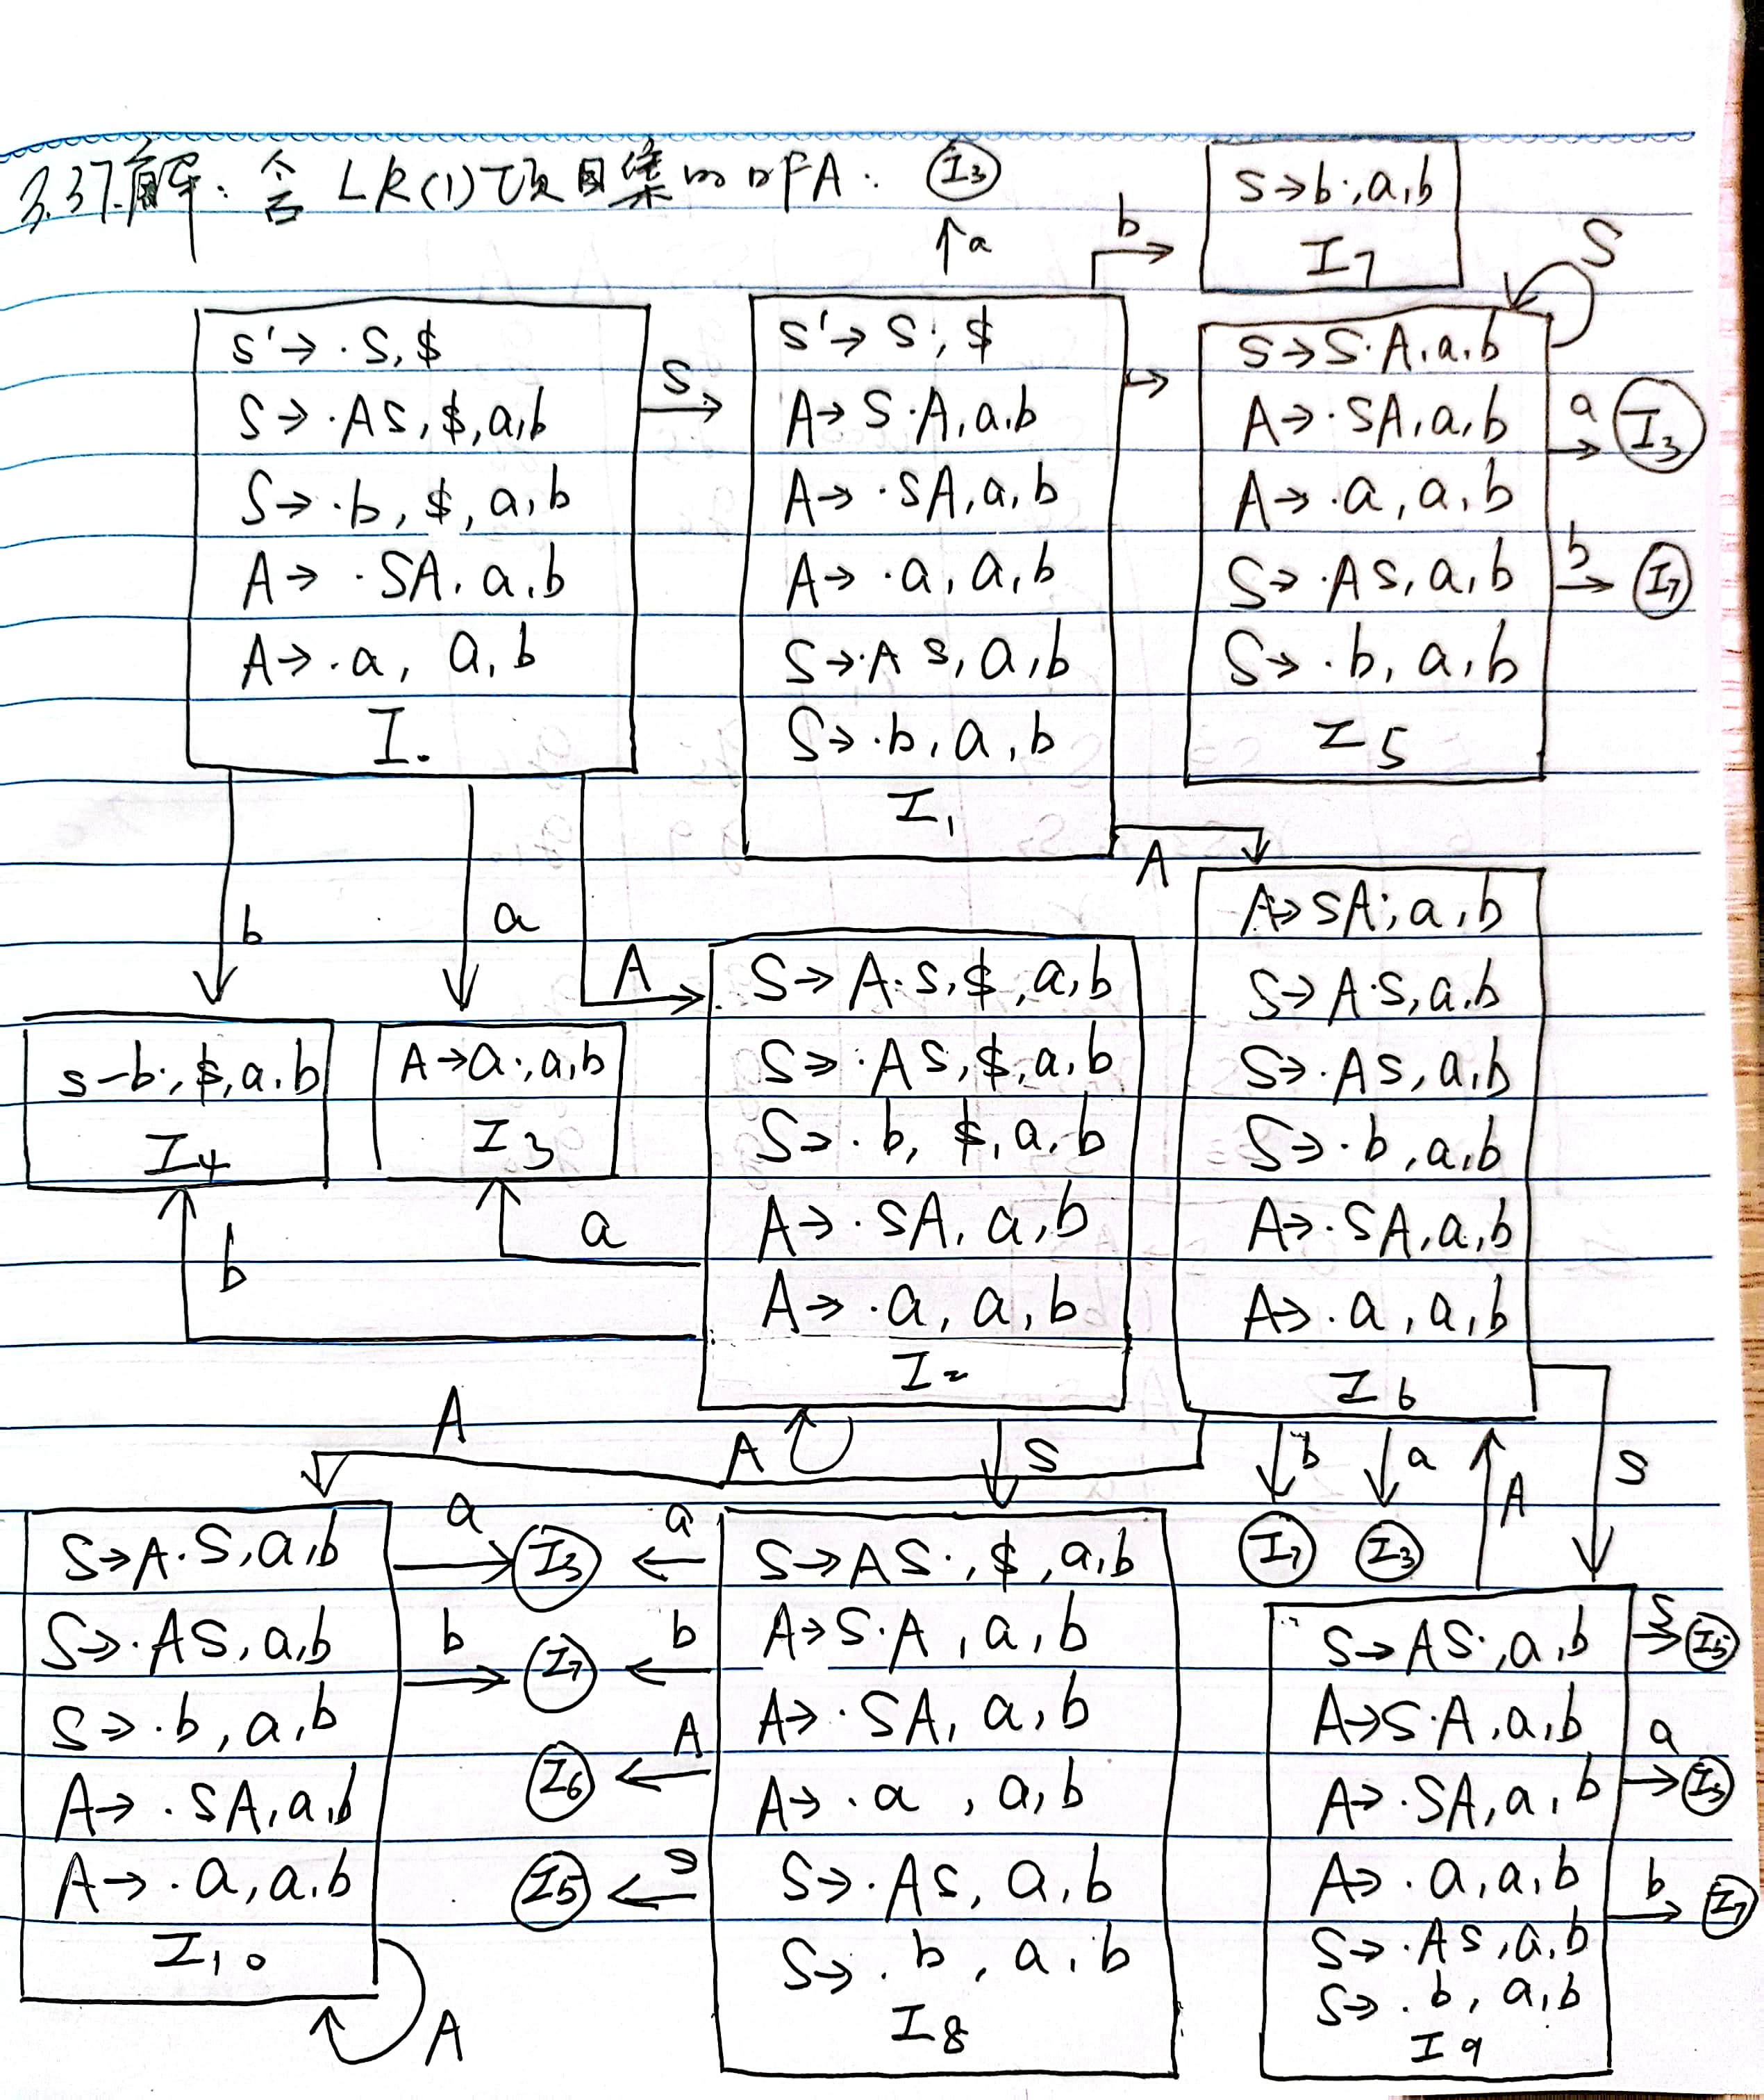 3.37.解: 含 LR(1)项目集的DFA:
I3
↑a
b
S→b·,a,b
I7
S
S'→·S,$
S→·AS,$,a,b
S→·b,$,a,b
A→·SA,a,b
A→·a, a,b
I0
S
S'→S·,$
A→S·A,a,b
A→·SA,a,b
A→·a,a,b
S→·AS,a,b
S→·b,a,b
I1
S→S·A,a,b
A→·SA,a,b
A→·a,a,b
S→·AS,a,b
S→·b,a,b
I5
a
I3
b
I7
A
b
a
A
S→b·,$,a,b
I4
A→a·,a,b
I3
b
a
S→A·S,$,a,b
S→·AS,$,a,b
S→·b,$,a,b
A→·SA,a,b
A→·a,a,b
I2
A→SA·,a,b
S→A·S,a,b
S→·AS,a,b
S→·b,a,b
A→·SA,a,b
A→·a,a,b
I6
A
A
S
b
a
A
S
I7
I3
S→A·S,a,b
S→·AS,a,b
S→·b,a,b
A→·SA,a,b
A→·a,a,b
I10
A
a
I3
a
b
I7
b
I6
A
I5
S
S→AS·,$,a,b
A→S·A,a,b
A→·SA,a,b
A→·a,a,b
S→·AS,a,b
S→·b,a,b
I8
S→AS·,a,b
A→S·A,a,b
A→·SA,a,b
A→·a,a,b
S→·AS,a,b
S→·b,a,b
I9
S
I5
a
I3
b
I7